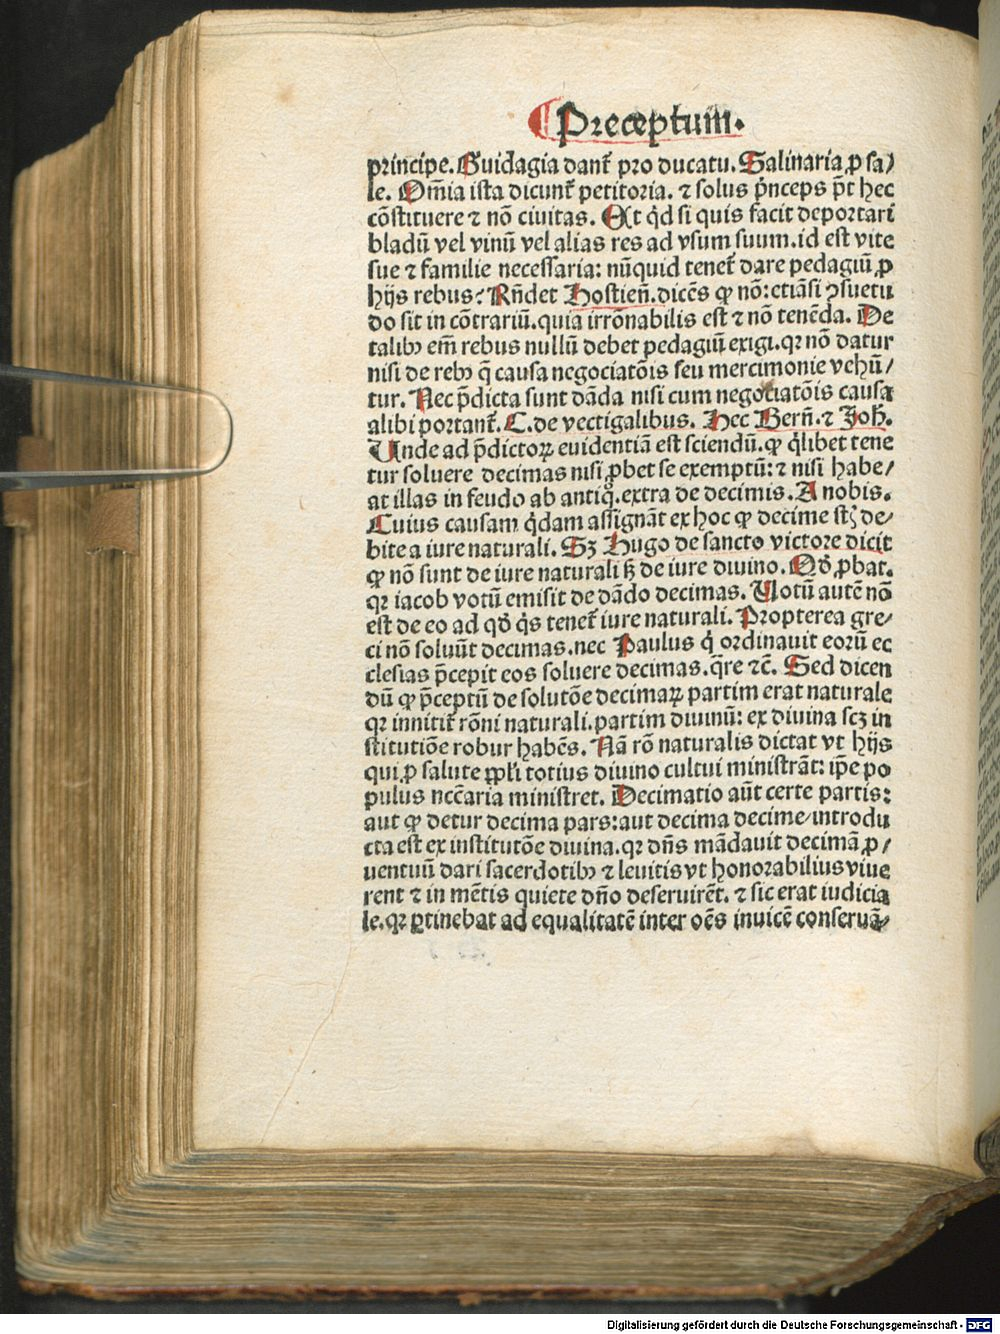 ¶Preceptum.
principe. Guidagia dant᷑ pro ducatu. Salinaria ꝓ sa/
le. Om̄ia ista dicunt᷑ petitoria. ⁊ solus p̄nceps p̄t hec
cōstituere ⁊ nō ciuitas. At qd̓ si quis facit deportari
bladū vel vinū vel alias res ad vsum suum. id est vite
sue ⁊ familie necessaria: nūquid tenet᷑ dare pedagiū ꝓ
hijs rebus? Rn̄det Hostien̄. dicēs ꝙ nō: etiāsi ꝯsuetu
do sit in cōtrariū. quia irrōnabilis est ⁊ nō tenēda. De
talibꝫ em̄ rebus nullū debet pedagiū exigi. qꝛ nō datur
nisi de rebꝫ q̄ causa negociatōis seu mercimonie vehū/
tur. Nec p̄dicta sunt dāda nisi cum negociatōis causa
alibi portant᷑. C. de vectigalibus. Hec Bern̄. ⁊ Joh̄.
Unde ad p̄dictoꝝ euidentiā est sciendū. ꝙ q̓libet tene
tur soluere decimas nisi ꝓbet se exemptū: ⁊ nisi habe/
at illas in feudo ab antiqͦ. extra de decimis. A nobis.
Cuius causam q̓dam assignāt ex hoc ꝙ decime stꝫ de/
bite a iure naturali. Sꝫ Hugo de sancto victore dicit
ꝙ nō sunt de iure naturali sꝫ de iure diuino. Qd̓ ꝓbat.
qꝛ iacob votū emisit de dādo decimas. Uotū autē nō
est de eo ad qd̓ q̓s tenet᷑ iure naturali. Propterea gre/
ci nō soluūt decimas. nec Paulus q̓ ordinauit eorū ec
clesias p̄cepit eos soluere decimas. q̄re ⁊c̄. Sed dicen
dū ꝙ p̄ceptū de solutōe decimaꝝ partim erat naturale
qꝛ innitit᷑ rōni naturali. partim diuinū: ex diuina scꝫ in
stitutiōe robur habēs. Nā rō naturalis dictat vt hijs
qui ꝓ salute ppl̓i totius diuino cultui ministrāt: ip̄e po
pulus nccāria ministret. Decimatio aūt certe partis:
aut ꝙ detur decima pars: aut decima decime/introdu
cta est ex institutōe diuina. qꝛ dn̄s mādauit decimā ꝓ/
uentuū dari sacerdotibꝫ ⁊ leuitis vt honorabilius viue
rent ⁊ in mētis quiete dn̄o deseruirēt. ⁊ sic erat iudicia
le. qꝛ ꝑtinebat ad equalitatē inter oēs inuicē conseruā/
Digitalisierung gefördert durch die Deutsche Forschungsgemeinschaft - DFG